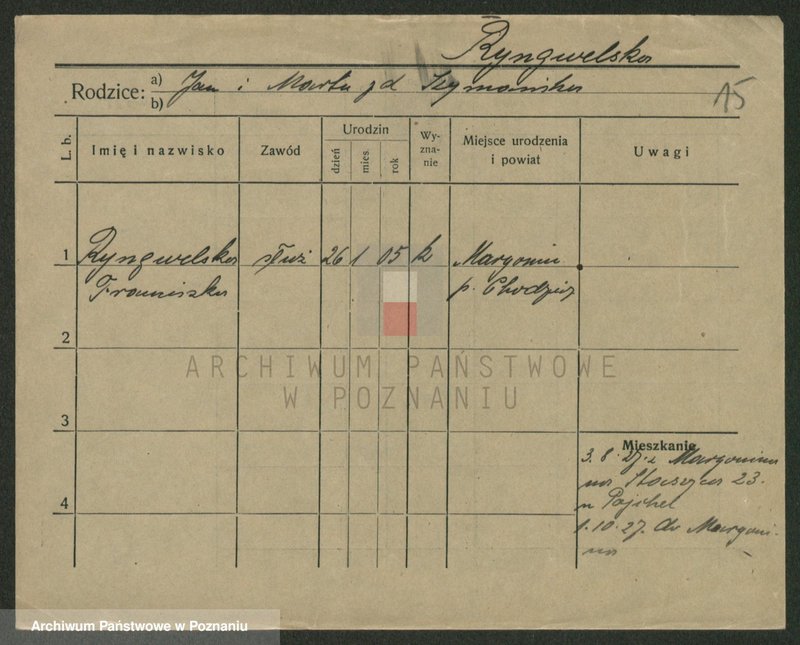 Ryngwelska
Rodzice: a) Jan i Marta z d Szymańska
b)
15
L. b.
Imię i nazwisko
Zawód
Urodzin
dzień
mies.
rok
Wy-
zna-
nie
Miejsce urodzenia
i powiat
Uwagi
1 Ryngwelska służ 26 1 05 k Margonin
Franciszka p. Chodzież
2
3
4
ARCHIWUM PAŃSTWOWE
W POZNANIU
Mieszkanie
3.8.27. z Margonina
na Staszyca 23.
u
1.10.27. do Margoni-
na
Archiwum Państwowe w Poznaniu